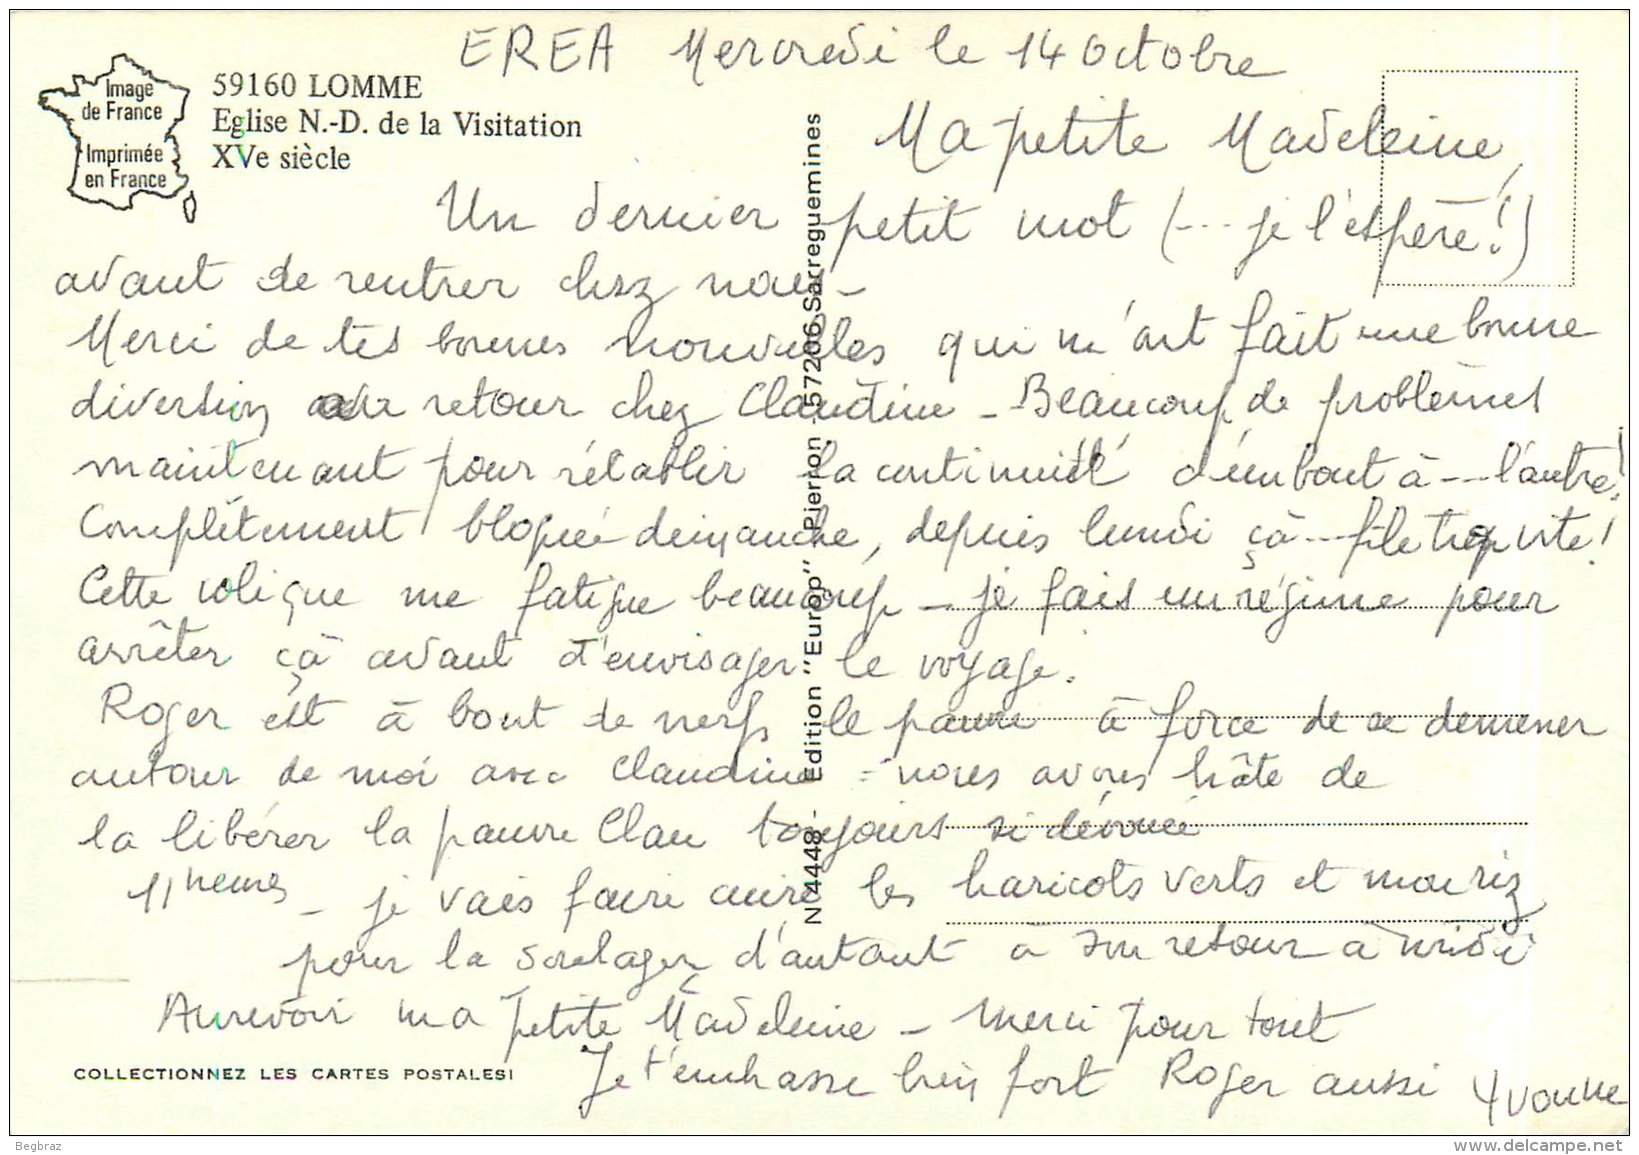 EREA Mercredi le 14 Octobre
Image
de France
Imprimée
en France
59160 LOMME
Eglise N.-D. de la Visitation
XVe siècle
Ma petite Madeleine,
Un dernier petit mot (... je l'espère!)
avant de rentrer chez nous -
Merci de tes bonnes nouvelles qui m'ont fait une bonne
diversion au retour chez Claudine - Beaucoup de problèmes
maintenant pour rétablir la continuité d'un bout à --- l'autre!
Complètement bloquée dimanche, depuis lundi çà --- file trop vite!
Cette colique me fatigue beaucoup - je fais un régime pour
arrêter çà avant d'envisager le voyage.
Roger est à bout de nerfs le pauvre à force de se demener
autour de moi avec Claudine = nous avons hâte de
la libérer la pauvre Clau toujours si dévouée
11 heures - je vais faire cuire les haricots verts et mon riz
pour la soulager d'autant à son retour à midi
Au revoir ma petite Madeleine - Merci pour tout
Je t'embrasse bien fort Roger aussi Yvonne
COLLECTIONNEZ LES CARTES POSTALES!
N° 4448 - Edition "Europ" Pierron - 57206 Sarreguemines
Begbraz
www.delcampe.net